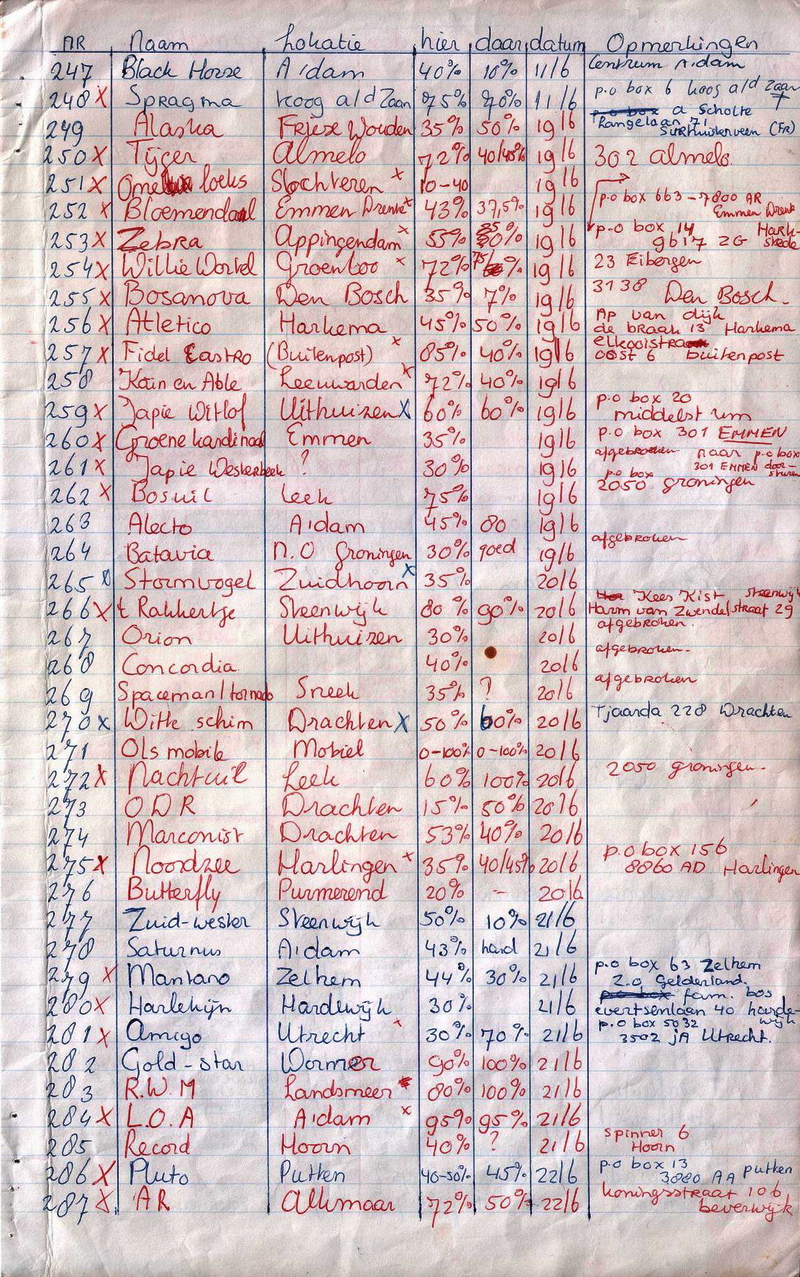 AR Naam Lokatie hier daar datum Opmerkingen
247 Black Horse A'dam 40% 10% 11/6 Centrum A'dam
248 X Spragma Koog a/d Zaan 75% 70% 11/6 p.o box 6 Koog a/d Zaan
249 Alaska Frieze Wouden 35% 50% 19/6 a Scholte
Rangelaan 71
Surhuisterveen (FR)
250 X Tijger Almelo 72% 40/45% 19/6 302 almelo
251 X loeks Slochteren x 10-40 19/6
252 X Bloemendaal Emmen Drente x 43% 37,5% 19/6 p.o box 663 - 7800 AR
Emmen Drent
253 X Zebra Appingendam x 55% 19/6 p-o box 14 Hark-
9617 ZG stede
254 X Willie Wortel Groenloo x 72% 19/6 23 Eibergen
255 X Bosanova Den Bosch 35% 7% 19/6 3138 Den Bosch
256 X Atletico Harkema 45% 50% 19/6 AP van dijk
de braak 13 Harkema
257 X Fidel Castro (Buitenpost) x 85% 40% 19/6
oost 6 buitenpost
258 Kain en Able Leeuwarden x 72% 40% 19/6
259 X Japie Witlof Uithuizen X 60% 60% 19/6 p.o box 20
middelstum
260 X Groene kardinaal Emmen 35% 19/6 p.o box 301 EMMEN
261 X Japie Westerbeek ? 30% 19/6 afgebroken naar p.o box
301 EMMEN door-
sturen
262 X Bosuil Leek 75% 19/6 p.o box
2050 groningen
263 Alecto A'dam 45% 80 19/6
264 Batavia N.O Groningen 30% goed 19/6 afgebroken
265 Stormvogel Zuidhoorn x 35% 20/6
266 X 't Rakkertje Steenwijk 80% 90% 20/6 Kees Kist Steenwijk
Harm van Zwendelstraat 29
267 Orion Uithuizen 30% 20/6 afgebroken.
268 Concordia 40% 20/6 afgebroken.
269 Spaceman/tornado Sneek 35% ? 20/6 afgebroken
270 X Witte schim Drachten X 50% 60% 20/6 Tjaarda 228 Drachten
271 Ols mobile Mobiel 0-100% 0-100% 20/6
272 X Nachtuil Leek 60% 100% 20/6 2050 groningen.
273 ODR Drachten 15% 50% 20/6
274 Marconist Drachten 53% 40% 20/6
275 X Noordzee Harlingen x 35% 40/45% 20/6 p.o box 156
8860 AD Harlingen
276 Butterfly Purmerend 20% - 20/6
277 Zuid-wester Steenwijk 50% 10% 21/6
278 Saturnus A'dam 43% hard 21/6
279 X Mantano Zelhem 44% 30% 21/6 p.o box 63 Zelhem
Z.O Gelderland.
280 X Harlekijn Hardewijk 30% 21/6 fam. bos
evertsenlaan 40 harde-
wijk
281 X Amigo Utrecht x 30% 70% 21/6 p.o box 5032
3502 jA Utrecht.
282 Gold-star Wormer 90% 100% 21/6
283 R.W.M Landsmeer 80% 100% 21/6
284 X L.O.A A'dam x 95% 95% 21/6
285 Record Hoorn 40% ? 21/6 spinner 6
Hoorn
286 X Pluto Putten 40-50% 45% 22/6 p.o box 13
3880 AA putten
287 X AR Alkmaar 72% 50% 22/6 koningsstraat 106
beverwijk